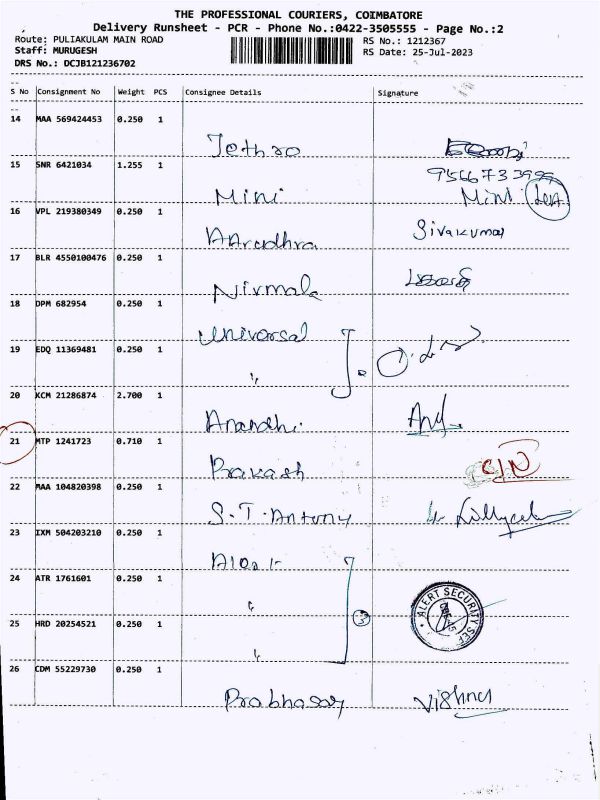 THE PROFESSIONAL COURIERS, COIMBATORE
Delivery Runsheet - PCR - Phone No.:0422-3505555 - Page No.:2
Route: PULIAKULAM MAIN ROAD RS No.: 1212367
Staff: MURUGESH RS Date: 25-Jul-2023
DRS No.: DCJB121236702
S No Consignment No Weight PCS Consignee Details Signature
14 MAA 569424453 0.250 1
Jethro
15 SNR 6421034 1.255 1
Mini Mini
16 VPL 219380349 0.250 1
Sivakumar
Aaradhra
17 BLR 4550100476 0.250 1
Nirmala
18 DPM 682954 0.250 1
Universal
19 EDQ 11369481 0.250 1
"
20 KCM 21286874 2.700 1
Anandhi
21 MTP 1241723 0.710 1
Prakash
22 MAA 104820398 0.250 1
S.T.Antony
23 IXM 504203210 0.250 1
24 ATR 1761601 0.250 1
"
25 HRD 20254521 0.250 1
ALERT SECURITY SER
3
"
26 CDM 55229730 0.250 1
Vishnu